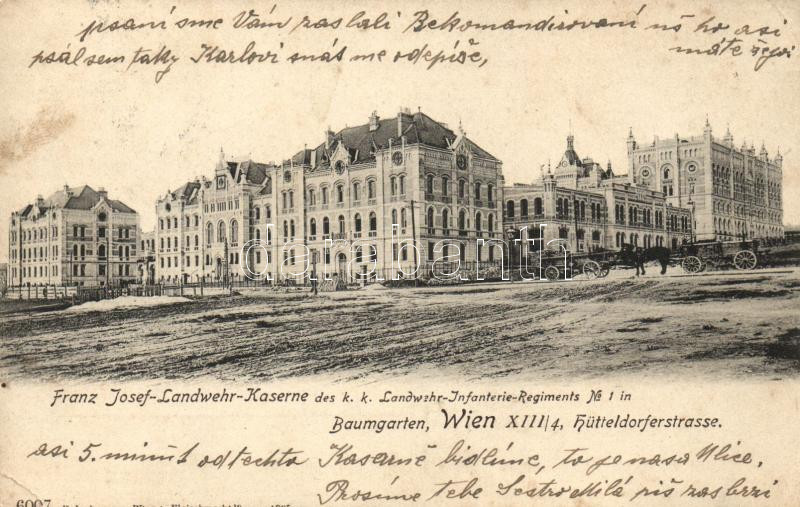 psaní sme Vám zaslali Bekomandirovaní už ho asi
psálsem taky Karlovi snát me odepíše, máte řekvi
darabanth
Franz Josef-Landwehr-Kaserne des k. k. Landwehr-Infanterie-Regiments № 1 in
Baumgarten, Wien XIII/4, Hütteldorferstrasse.
asi 5. minut odtechto Kasarně bidlíme, to je nasa Ulice,
Prosíme tebe Sestro Milá piš zas brzi
6007